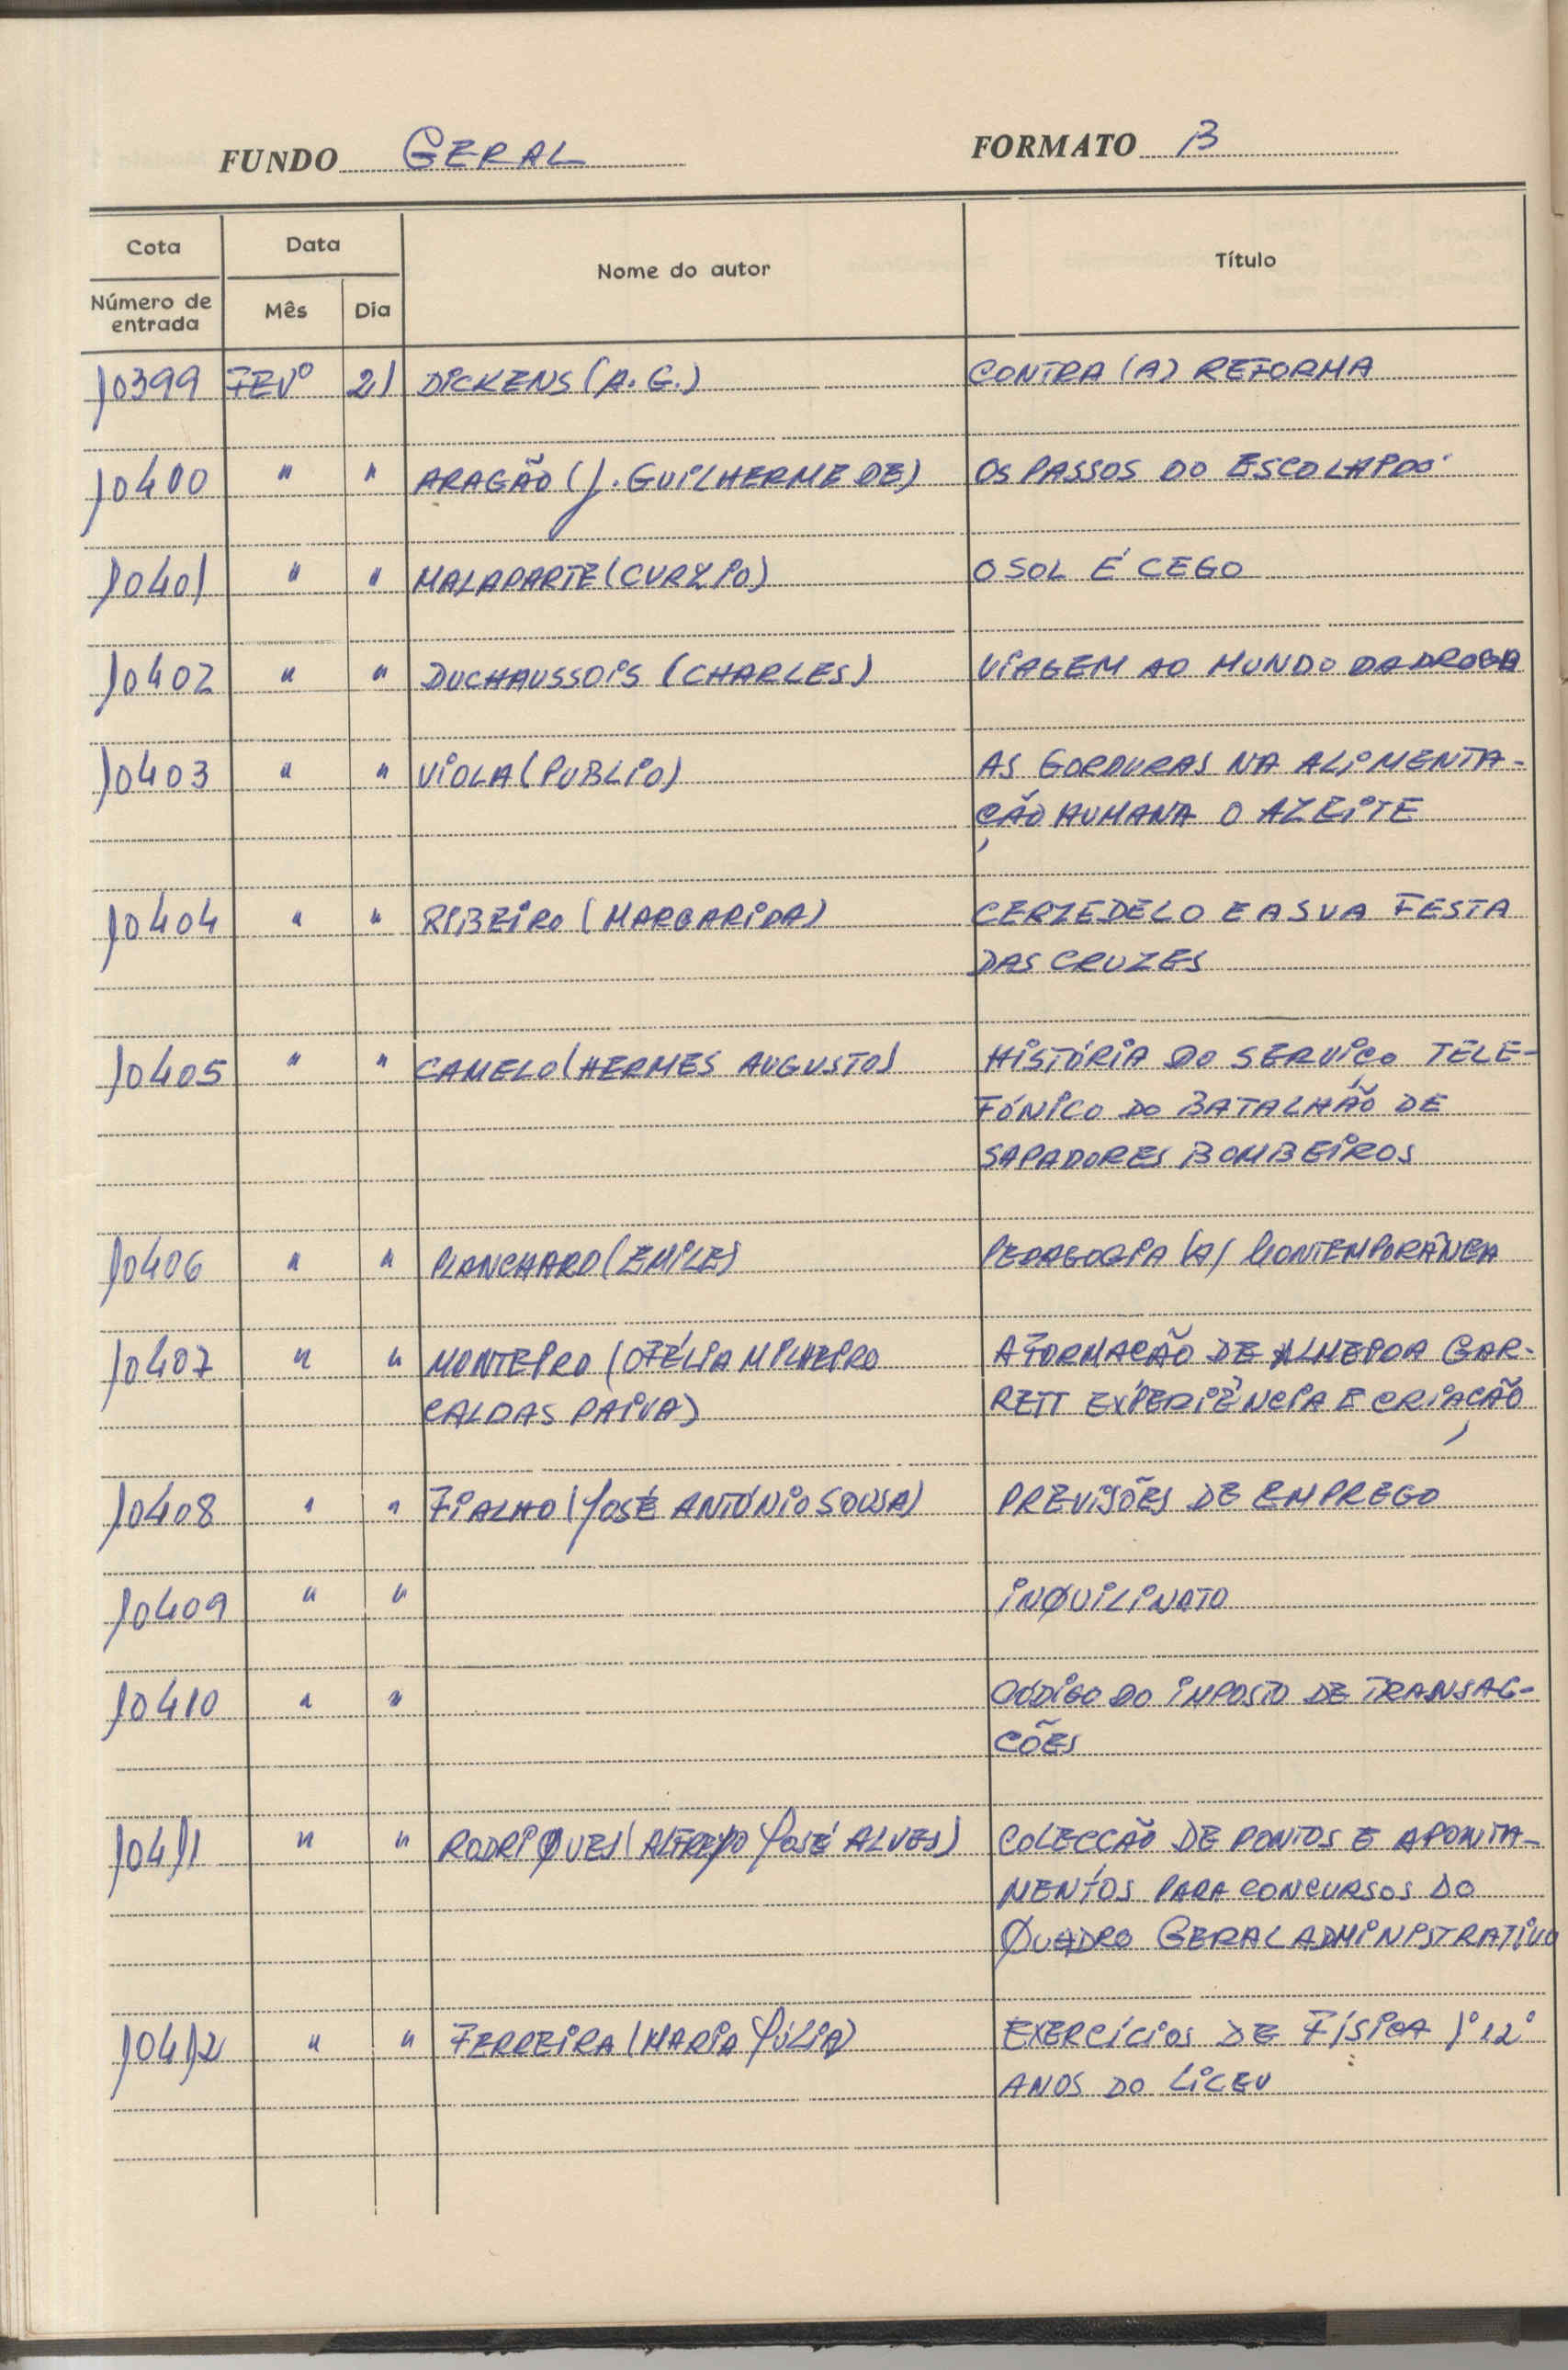 FUNDO GERAL FORMATO B
Cota Data Nome do autor Título
Número de entrada Mês Dia
10399 FEVº 21 DICKENS (A. G.) CONTRA (A) REFORMA
10400 " " ARAGÃO (J. GUILHERME DE) OS PASSOS DO
10401 " " MALAPARTE (CURZIO) O SOL É CEGO
10402 " " DUCHAUSSOIS (CHARLES) VIAGEM AO MUNDO DA DROGA
10403 " " VIOLA (PUBLIO) AS GORDURAS NA ALIMENTA-
ÇÃO HUMANA O AZEITE
10404 " " RIBEIRO (MARGARIDA) CERZEDELO E A SUA FESTA
DAS CRUZES
10405 " " CAMELO (HERMES AUGUSTO) HISTÓRIA DO SERVIÇO TELE-
FÓNICO DO BATALHÃO DE
SAPADORES BOMBEIROS
10406 " " PLANCHARD (EMILE) PEDAGOGIA (A) CONTEMPORÂNEA
10407 " " MONTEIRO (OFÉLIA MILHEIRO A FORMAÇÃO DE ALMEIDA GAR-
CALDAS PAIVA) RETT EXPERIÊNCIA E CRIAÇÃO
10408 " " FIALHO (JOSÉ ANTÓNIO SOUSA) PREVISÕES DE EMPREGO
10409 " " INQUILINATO
10410 " " CÓDIGO DO IMPOSTO DE TRANSAC-
ÇÕES
10411 " " RODRIGUES (ALFREDO JOSÉ ALVES) COLECCÃO DE PONTOS E APONTA-
MENTOS PARA CONCURSOS DO
QUADRO GERAL ADMINISTRATIVO
10412 " " FERREIRA (MARIA JÚLIA) EXERCÍCIOS DE FÍSICA 1º 12º
ANOS DO LICEU